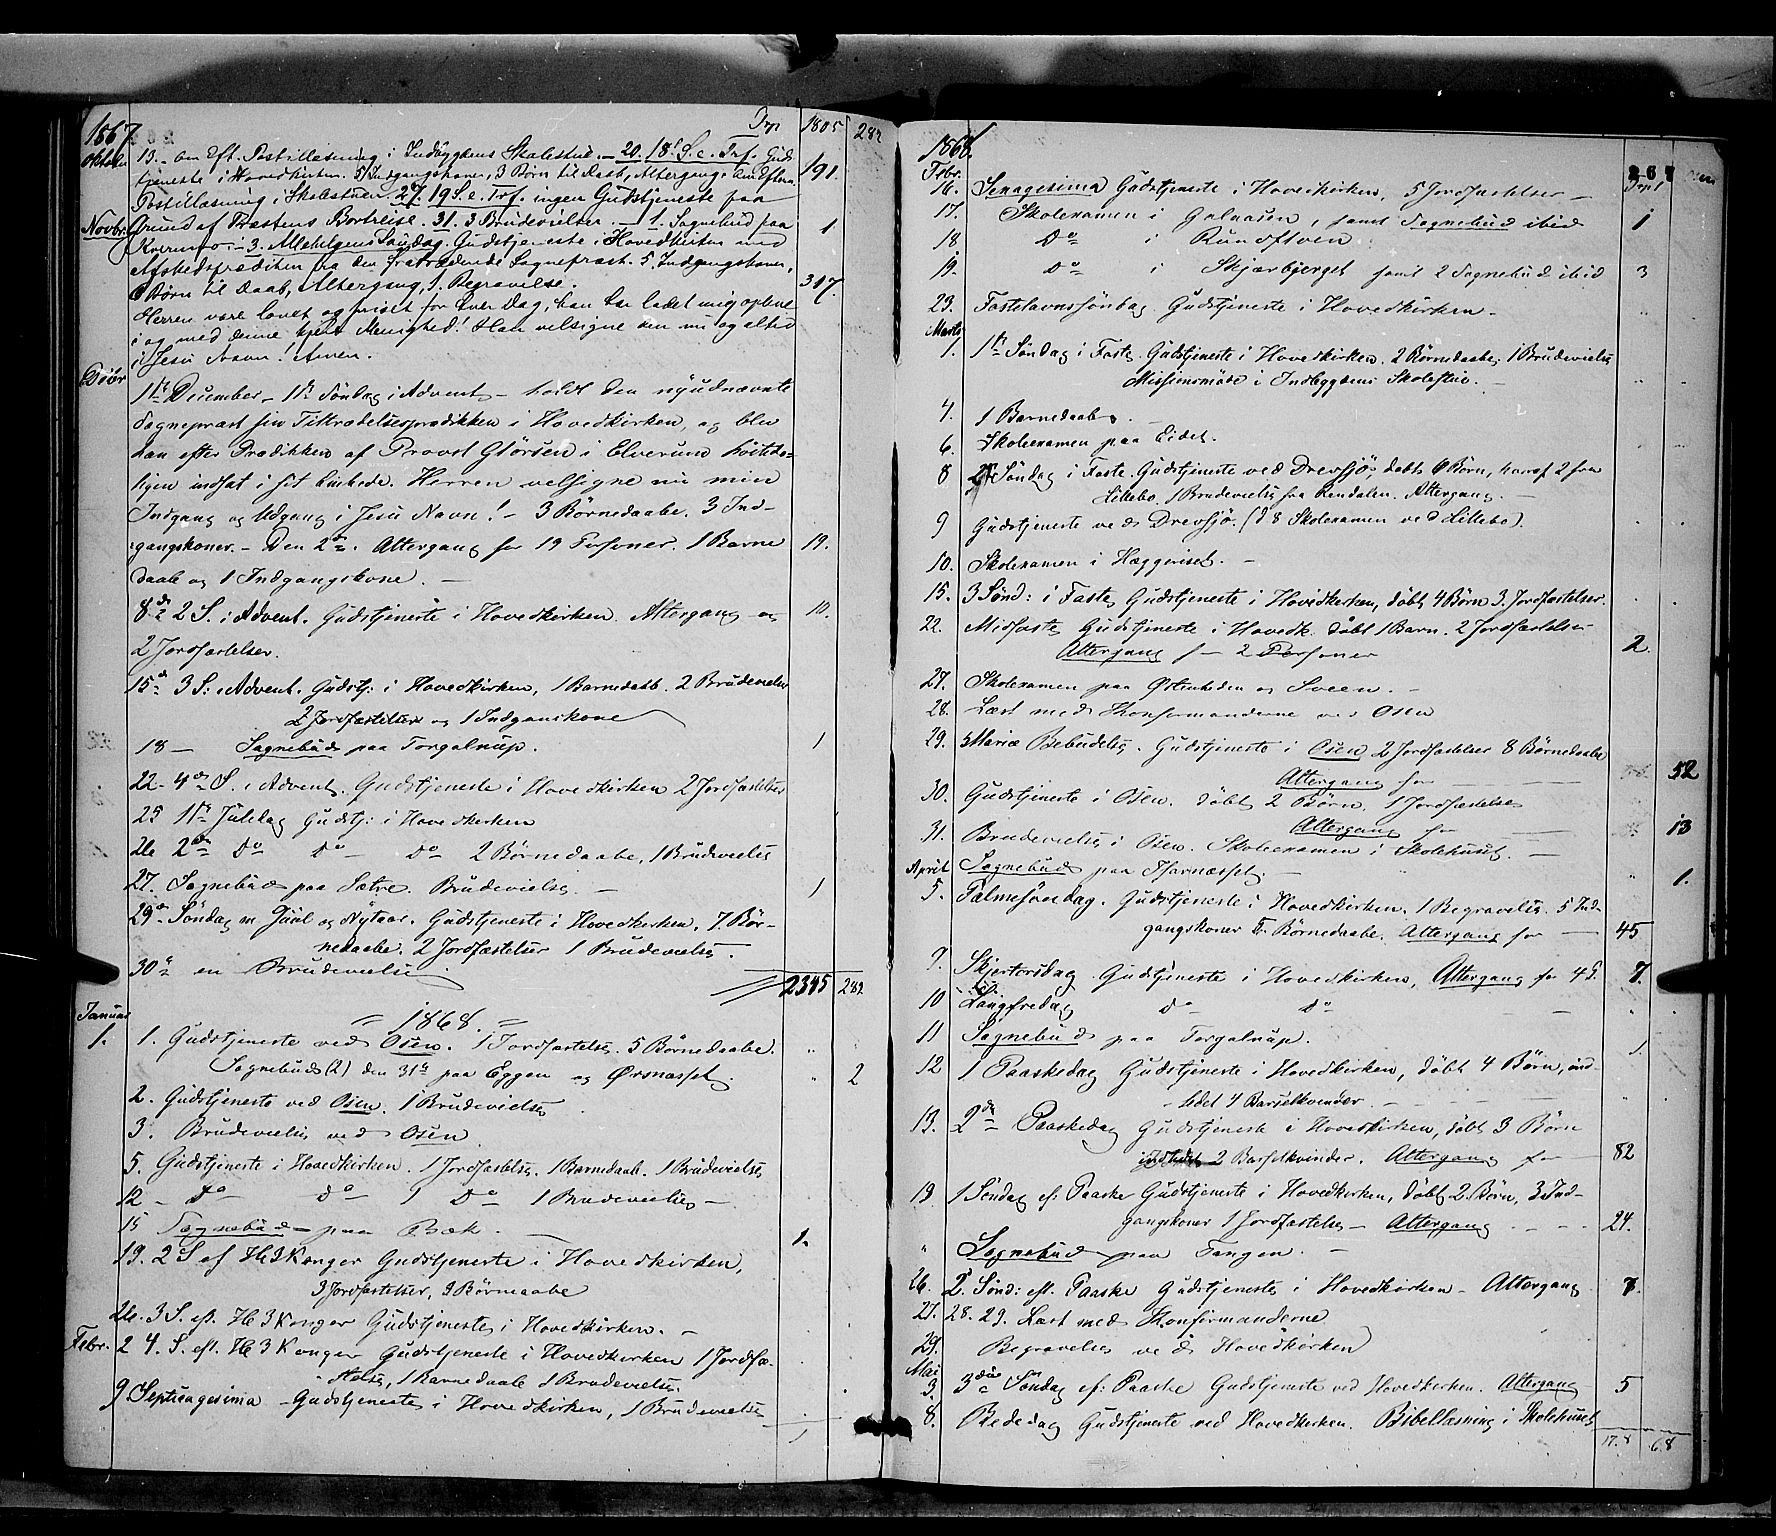 1867. Trys. 1805 282
Oktober 13. - om Eft. Postillæsning i Indbyggdens Skolestue. - 20. 18 S. e. Trf. Guds
tjeneste i Hovedkirken. 5 Indgangskoner, 3 Børn til Daab, Altergang. Om Efterm. 191.
Postillæsning i Skolestuen. 27. 19 S. e. Trf. ingen Gudstjeneste paa
Novbr. Grund af Præstens Bortreise. 31. 3 Brudevielser. - 1. Sognebud paa 1
- 3. Allehelgens Søndag. Gudstjeneste i Hovedkirken med
Afskedsprædiken fra den fratrædende Sognepræst. 5 Indgangskoner,
6 Børn til Daab, Altergang, 1 Begravelse. 317.
Herren være lovet og priist for hver Dag, han har ladet mig opleve
i og med denne kjære Menighed! Han velsigne den nu og altid
i Jesu Navn! Amen.
Dcbr
1ste December - 1ste Søndag i Advent - holdt den nyudnævnte
Sognepræst sin Tiltrædelsesprædikken i Hovedkirken, og blev
han efter Prædikken af Provst Glørsen i Elverum høitide-
ligen indsat i sit Embede. Herren velsigne nu min
Indgang og Udgang i Jesu Navn! - 3 Børnedaabe. 3 Ind-
gangskoner. - Den 2den. Altergang for 19 Personer. 1 Barne 19.
daab og 1 Indgangskone. -
8de 2 S. i Advent. Gudstjeneste i Hovedkirken. Altergang og 10.
2 Jordfæstelser.
15de 3 S. i Advent. Gudstj: i Hovedkirken, 1 Barnedaab. 2 Brudevielser
2 Jordfæstelser og 1 Indganskone
18 - Sognebud paa Torgalnup. 1
22 - 4de S. i Advent. Gudstjeneste i Hovedkirken 2 Jordfæstelser
25 1ste Juledag Gudstj: i Hovedkirken
26 2den Do Do - Do 2 Børnedaabe, 1 Brudevielse
27. Sognebud paa Sætre. Brudevielse. - 1
29de Søndag m. Juul og Nytaar. Gudstjeneste i Hovedkirken. 7. Bør-
nedaabe. 2 Jordfæstelser 1 Brudevielse.
30te en Brudevielse
2345 282.
= 1868. =
Januar
1. 1. Gudstjeneste ved Osen. 1 Jordfæstelse. 5 Børnedaabe. "
Sognebud (2) den 31te paa Eggen og Ørsnæsset. " 2
2. Gudstjeneste ved Osen. 1 Brudevielse
3. Brudevielse ved Osen.
5. Gudstjeneste i Hovedkirken. 1 Jordfæstelse. 1 Barnedaab. 1 Brudevielse
12 - Do Do 1 Do 1 Brudevielse -
15 Sognebud - paa Bæk. - 1.
19. 2 S ef H 3 Konger Gudstjeneste i Hovedkirken,
3 Jordfæstelser, 3 Børnaabe
26. 3 S. eft. H 3 Konger Gudstjeneste i Hovedkirken. -
Febr. 2 4. S. eft. H 3 Konger Gudstjeneste i Hovedkirken 1 Jordfæ-
stelse, 1 Barnedaab 1 Brudevielse.
9. Septuagesima - Gudstjeneste i Hovedkirken, 1 Brudevielse
1868. 267
Febr. Trys. Osen
16. Sexagesima Gudstjeneste i Hovedkirken, 5 Jordfæstelser -
17. Skolexamen i Galaasen, samt Sognebud ibid 1
18 Do i Rundfloen
19. Do i Skjærbjerget samt 2 Sognebud ibid 3
23. Fastelavnssøndag Gudstjeneste i Hovedkirken.
Marts
1. 1ste Søndag i Faste. Gudstjeneste i Hovedkirken. 2 Børnedaabe. 1 Brudevielse
Missionsmøde i Indbyggdens Skolestue. -
4. 1 Barnedaab.
6. Skolexamen paa Eidet.
8 2 Søndag i Faste. Gudstjeneste ved Drevsjø, døbt 6 Børn, hvoraf 2 fra
Lillebo. 1 Brudevielse fra Rendalen. Altergang. -
9 Gudstjeneste ved Drevsjø. (d 8 Skolexamen ved Lillebo).
10. Skolexamen i Hæggeriset. -
15. 3 Sønd: i Faste Gudstjeneste i Hovedkirken, døbt 4 Børn 3. Jordfæstelser.
22. Midfaste Gudstjeneste i Hovedk. døbt 1 Barn. 2 Jordfæstelser
Altergang for 2 Personer 2
27. Skolexamen paa Østenheden og Sveen. -
28. Læst med Konfirmanderne ved Osen
29. Mariæ Bebudelse. Gudstjeneste i Osen 2 Jordfæstelser 8 Børnedaabe
Altergang for - 52
30. Gudstjeneste i Osen. døbt 2 Børn. 1 Jordfæstelse
Altergang for - 13
31. Brudevielse i Osen. Skolexamen i Skolehuset. -
April Sognebud paa . - 1.
5. Palmesøndag. Gudstjeneste i Hovedkirken. 1 Begravelse. 5 Ind-
gangskoner Børnedaabe. Altergang for - 45
9. Skjertorsdag Gudstjeneste i Hovedkirken, Altergang for 7.
10 Langfredag Do Do
11 Sognebud paa Torgalnup. 1.
12 1 Paaskedag Gudstjeneste i Hovedkirken, døbt 4 Børn, ind-
ledet 4 Barselkvinder.
13. 2den Paaskedag Gudstjeneste i Hovedkirken, døbt 3 Børn
indledet 2 Barselkvinder. Altergang for - 82
19 1 Søndag ef: Paaske Gudstjeneste i Hovedkirken, døbt 2 Børn, 3 Ind-
gangskoner 1 Jordfæstelse - Altergang 24.
" Sognebud paa Tangen. -
26. 2. Sønd: eft. Paaske Gudstjeneste i Hovedkirken - Altergang 7.
27. 28. 29. Læst med Konfirmanderne
29. Begravelse ved Hovedkirken
Mai
3. 3die Søndag ef: Paaske Gudstjeneste ved Hovedkirken. Altergang 5
8. Bededag Gudstjeneste ved Hovedkirken. Bibellæsning i Skolehuset
178 68